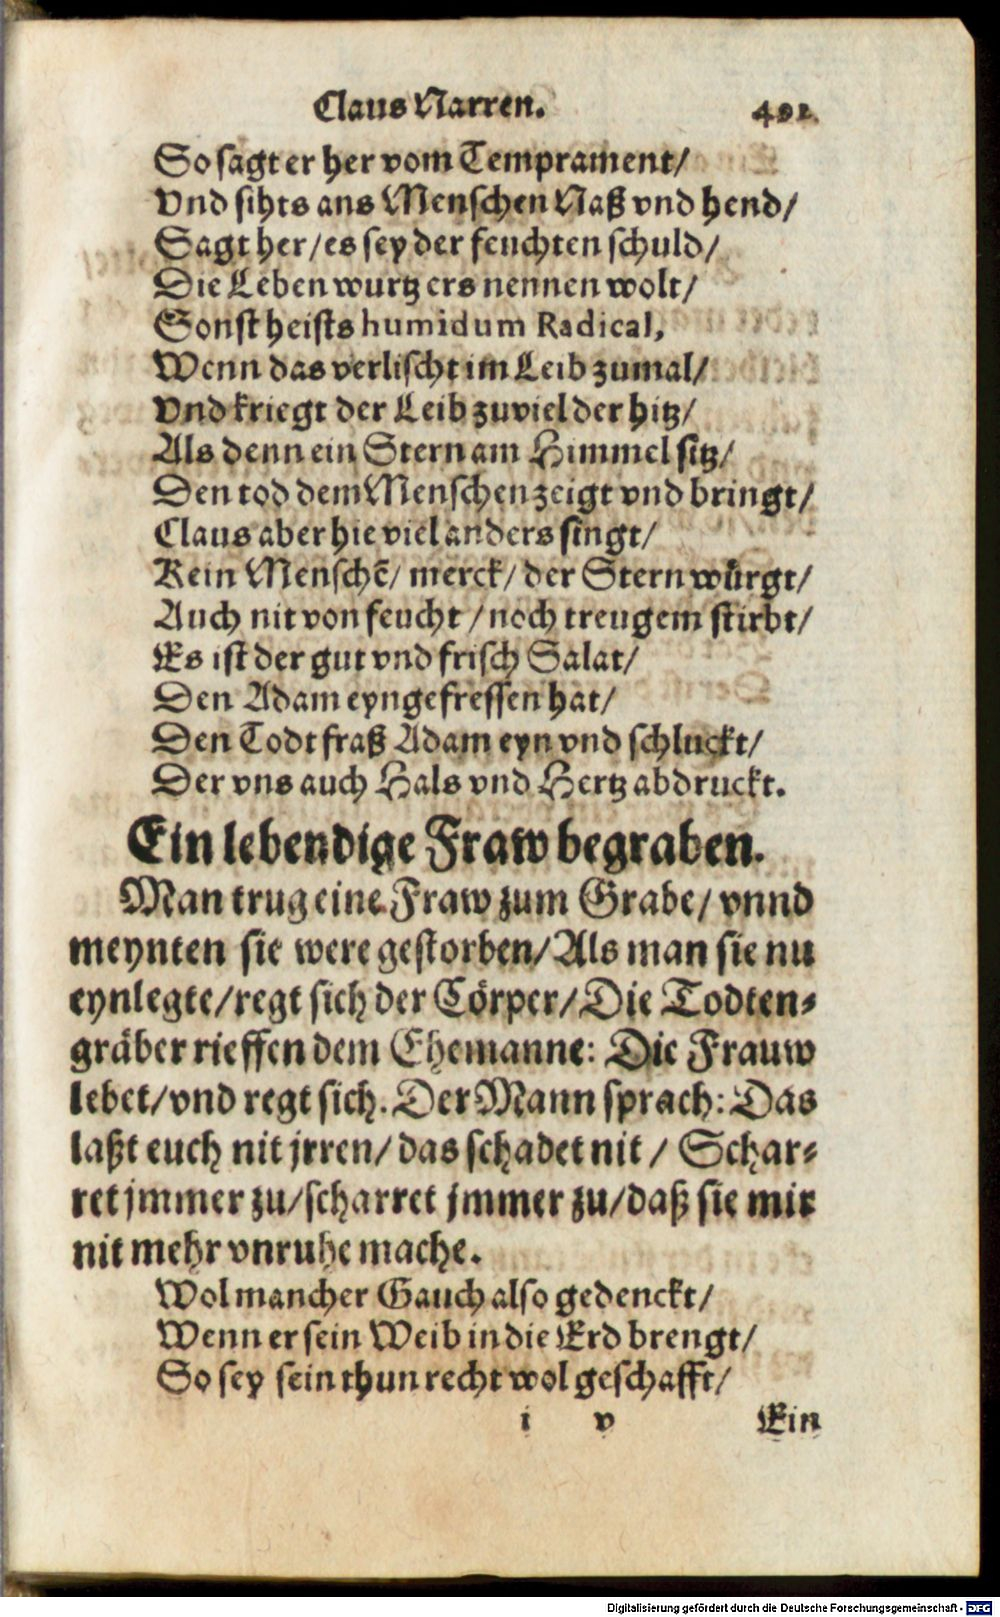 Claus Narren. 492.
So sagt er her vom Temprament/
Vnd sihts ans Menschen Naß vnd hend/
Sagt her/ es sey der feuchten schuld/
Die Leben wurtz ers nennen wolt/
Sonst heists humidum Radical,
Wenn das verlischt im Leib zumal/
Vnd kriegt der Leib zuviel der hitz/
Als denn ein Stern am Himmel sitz/
Den tod dem Menschen zeigt vnd bringt/
Claus aber hie viel anders singt/
Kein Menschē/ merck/ der Stern würgt/
Auch nit von feucht/ noch treugem stirbt/
Es ist der gut vnd frisch Salat/
Den Adam eyngefressen hat/
Den Todt fraß Adam eyn vnd schluckt/
Der vns auch Hals vnd Hertz abdruckt.
Ein lebendige Fraw begraben.
Man trug eine Fraw zum Grabe/ vnnd
meynten sie were gestorben/ Als man sie nu
eynlegte/ regt sich der Cörper/ Die Todten⸗
gräber rieffen dem Ehemanne: Die Frauw
lebet/ vnd regt sich. Der Mann sprach: Das
laßt euch nit jrren/ das schadet nit/ Schar⸗
ret jmmer zu/ scharret jmmer zu/ daß sie mir
nit mehr vnruhe mache.
Wol mancher Gauch also gedenckt/
Wenn er sein Weib in die Erd brengt/
So sey sein thun recht wol geschafft/
i v Ein
Digitalisierung gefördert durch die Deutsche Forschungsgemeinschaft - DFG